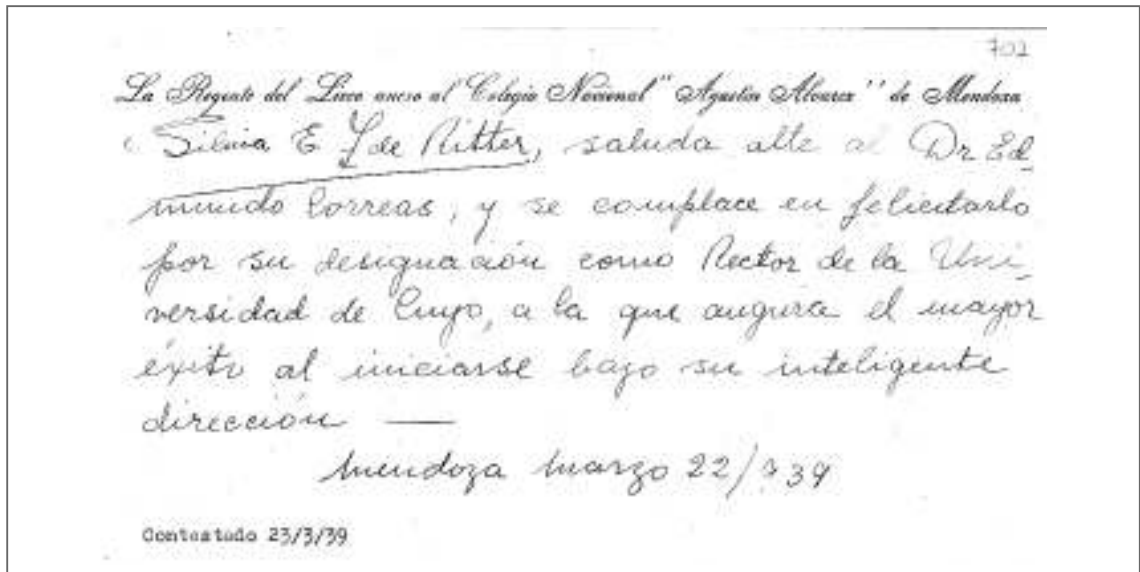 702
La Regente del Liceo anexo al Colegio Nacional "Agustín Alvarez" de Mendoza
Silvia E de Ritter, saluda atte al Dr Ed_
mundo Correas, y se complace en felicitarlo
por su designación como Rector de la Uni_
versidad de Cuyo, a la que augura el mayor
éxito al iniciarse bajo su inteligente
dirección —
Mendoza Marzo 22/939
Contestado 23/3/39